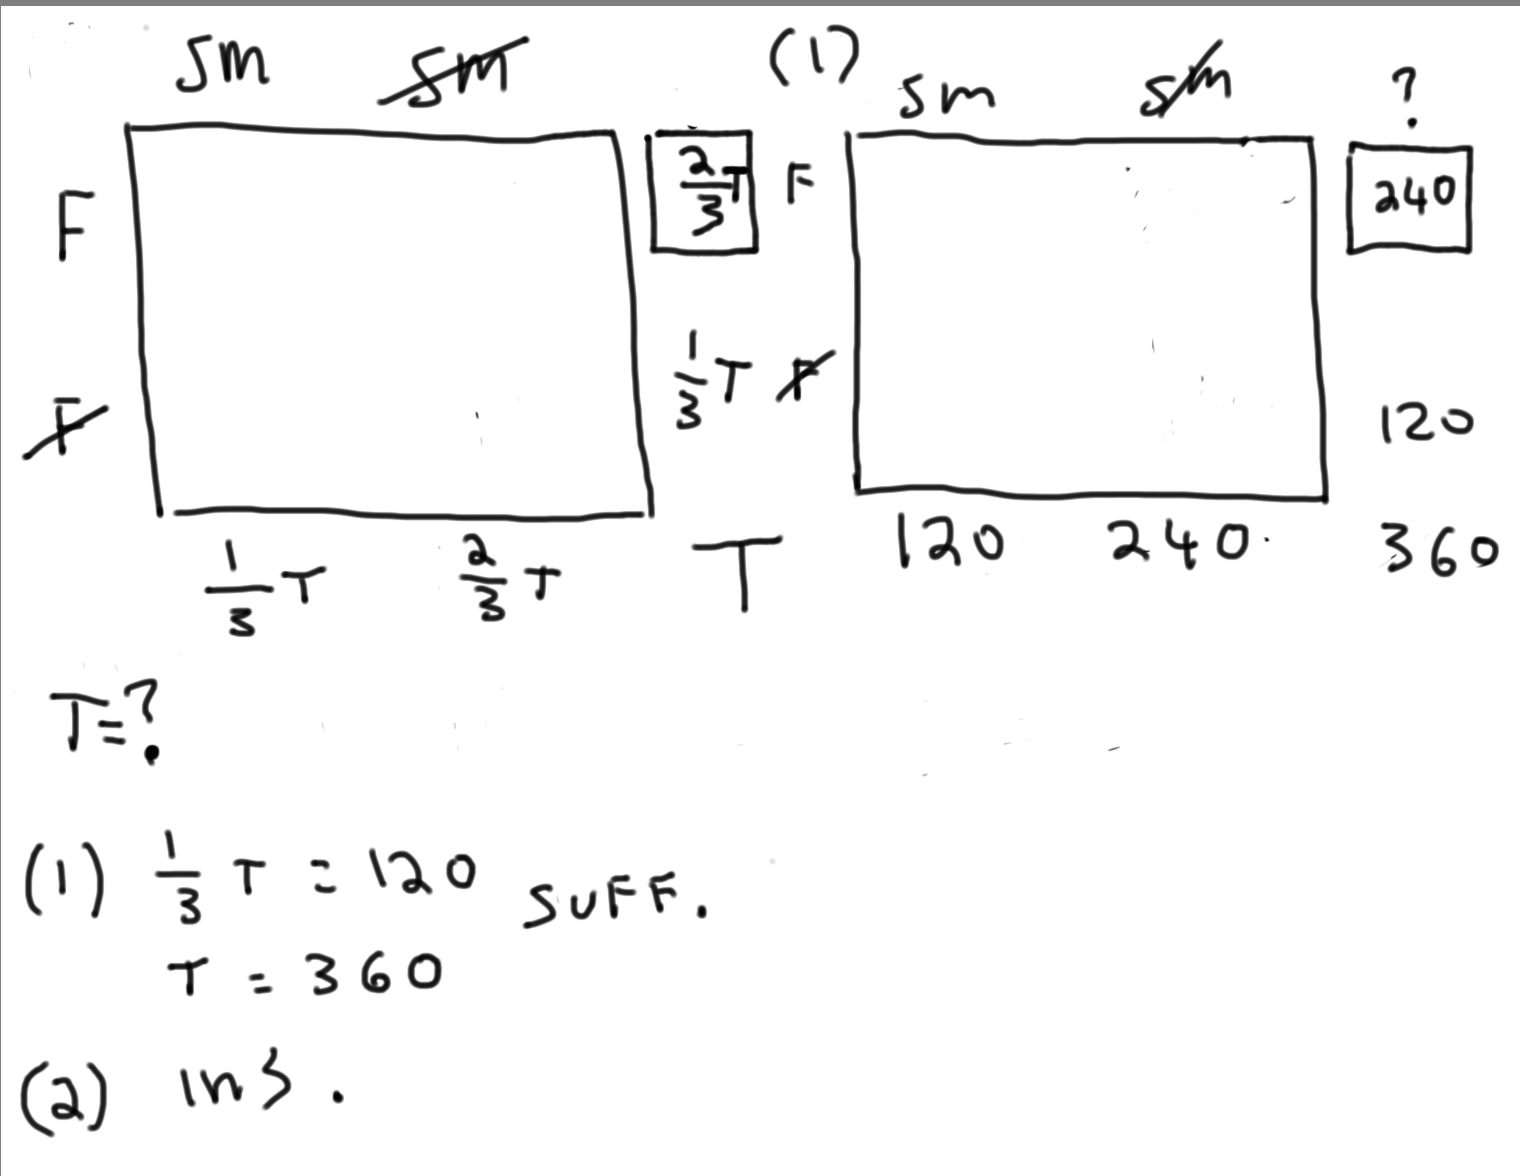 sm sm
F 2/3 T
F 1/3 T
1/3 T 2/3 T T
(1) sm sm ?
F 240
F 120
120 240 360
T=?
(1) 1/3 T = 120 SUFF.
T = 360
(2) ins.